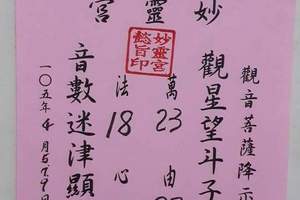 妙靈宮
觀音菩薩降示
觀星望斗子
萬23由
法18心
音數迷津顯
一○五年4月
妙靈宮
懿旨印